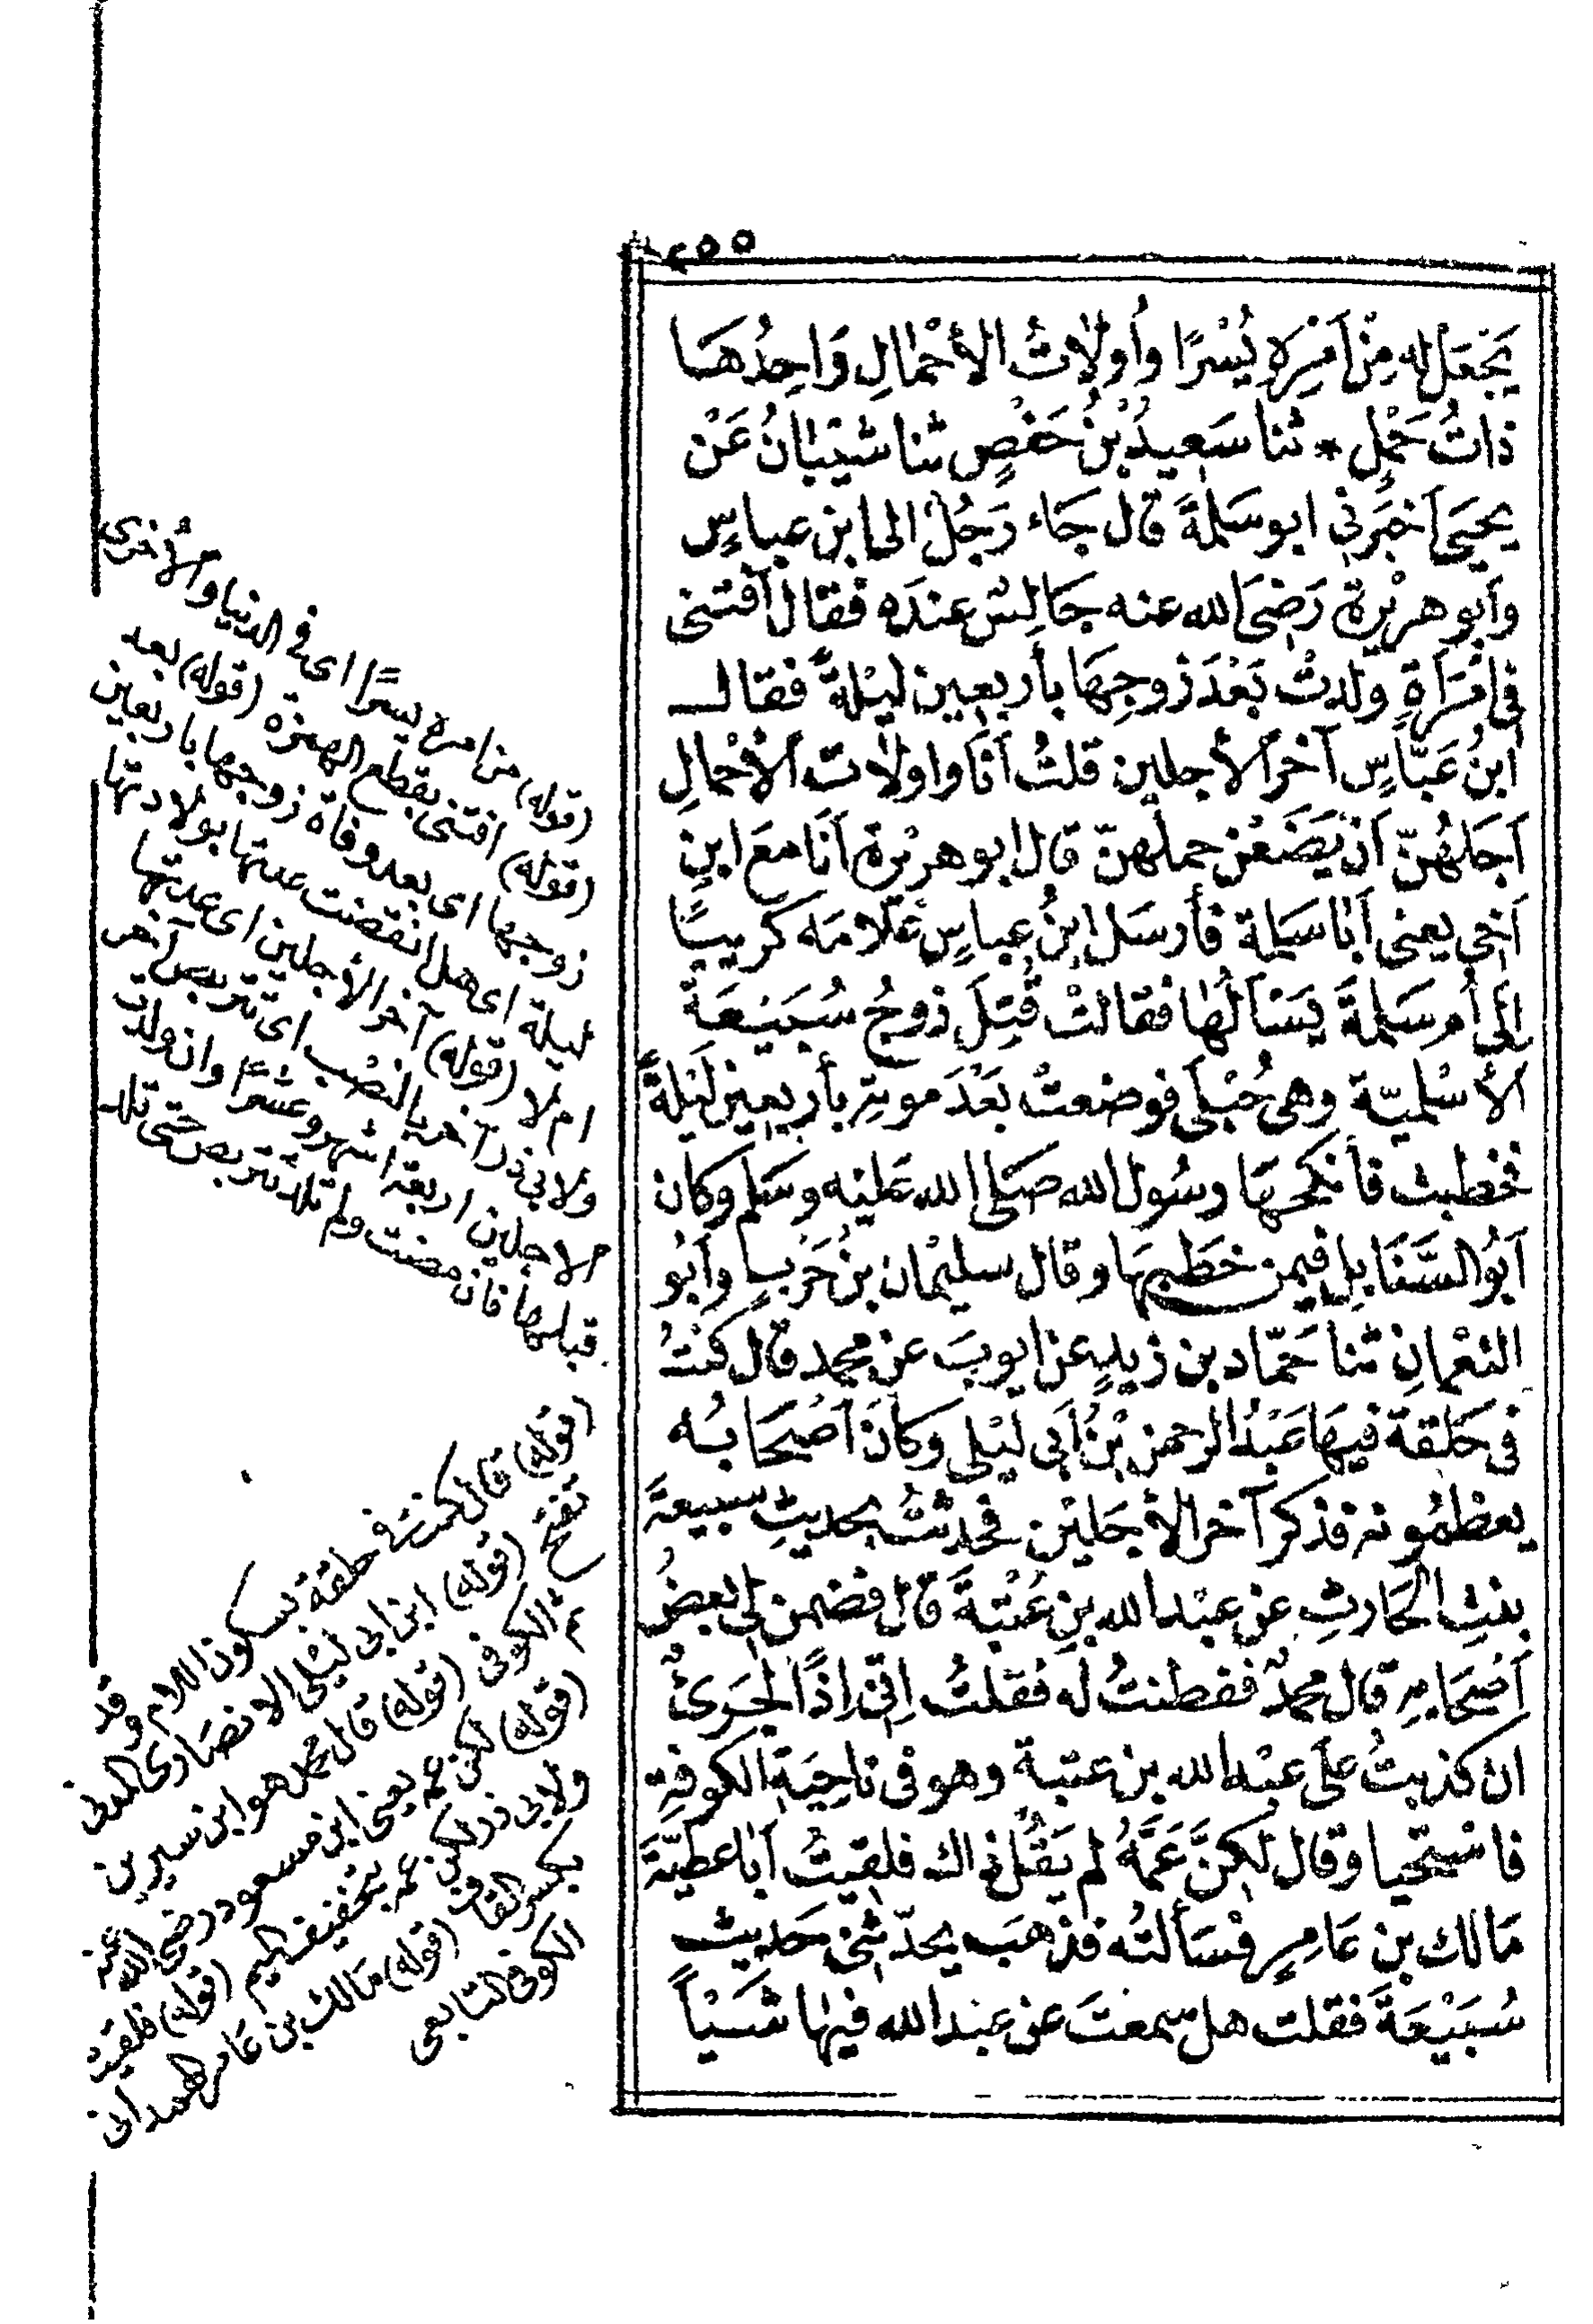 ٢٥٥
يَجْعَلْ له مِنْ اَمْرِهِ يُسْرًا وأُولَاتُ الأَحْمَالِ وَاحِدُهَا
ذاتُ حَمْلٍ * ثنا سَعِيدُ بْنُ حَفْصٍ ثنا شَيْبَانُ عَنْ
يحيَى اَخبَرَنِى ابو سَلمةَ قال جَاء رَجُلٌ الى ابن عباسٍ
وَاَبو هريْرةَ رَضىَ الله عنه جَالِسٌ عندَه فقال اَفتنى
فى امْرَاَةٍ ولدتْ بَعْدَ زوجِهَا بأربعين ليْلةً فقال
ابنُ عَبَّاسٍ آخرُ الأجلين قلتُ اَنَا واولَات الاَحْمالِ
اَجَلهُنّ اَنْ يَضَعْنَ حملَهنّ قال ابو هريْرة اَنَا معَ ابنِ
اَخى يعنى اَبَا سَلمة فأرسَل ابنُ عباسٍ غلَامَه كريبًا
إلى اُم سَلمةَ يَسْاَلُهَا فقالتْ قُتِلَ زوجُ سُبَيْعَةَ
الأسْلميّة وهى حُبْلَى فوضعتْ بَعْدَ موتِهِ بأربعين لَيْلةً
فخطبت فأنكحهَا رسُول الله صَلى الله عَليْه وسَلم وكان
اَبُو السَّنَابلِ فيمن خطَبهَا وقال سليْمان بنُ حَرْبٍ واَبُو
النعْمانِ ثنا حَمّاد بن زيدٍ عن ايوبَ عن محمد قال كنْتُ
فى حَلقة فيهَا عَبْدُ الرحمن بْنُ اَبى لَيْلى وَكانَ اَصْحَابُه
يعظمُونه فذكر آخر الأجَليْن فحدثتُ بحديثِ سبيعةَ
بنتِ الحَارثِ عن عبْد الله بنِ عُتْبةَ قال فضمن لى بعضُ
اَصْحَابهِ قال محمدٌ ففطنتُ لَه فقلتُ اِنّى اِذًا لجَرِىْءٌ
ان كذبتُ عَلَى عبْد الله بن عتبة وهو فى ناحِيَةِ الكوفةِ
فاسْتحيا وقال لكِنَّ عَمَّهُ لم يَقُلْ ذاك فلقيتُ اَبَا عطيّةَ
مَالك بن عَامِرٍ فسَألتُه فذهَبَ يحدّثنى حَديث
سُبَيْعَةَ فقلت هل سمعتَ عن عبد الله فيهَا شَيْأً
(قوله) من امره يسرًا اى فى الدنيا والأخرى
(قوله) افتنى بقطع الهمزة (قوله) بعد
زوجها اى بعد وفاة زوجها باربعين
ليلة اى هل انقضت عدتها بولادتها
ام لا (قوله) آخر الأجلين اى عدتها
ولابى ذر آخر بالنصْب اى تتربص آخر
الاجلين اربعة اشهر وعشرًا وان ولدت
قبلها فان مضت ولم تلد تتربص حتى تلد
(قوله) قال كنت فى حلقة بسكون اللام وقد
تفتح (قوله) ابن ابى ليْلى الانصَارى المدنى
ثم الكوفى (قوله) قال محمد هو ابن سيرين
(قوله) لكن عمه يعنى ابن مسعود رضى الله عنه
ولابى ذر لكن عمه بتخفيف الميم (قوله) فلقيت
بكسر القاف (قوله) مَالك بن عَامر الهمدانى
الكوفى التابعى